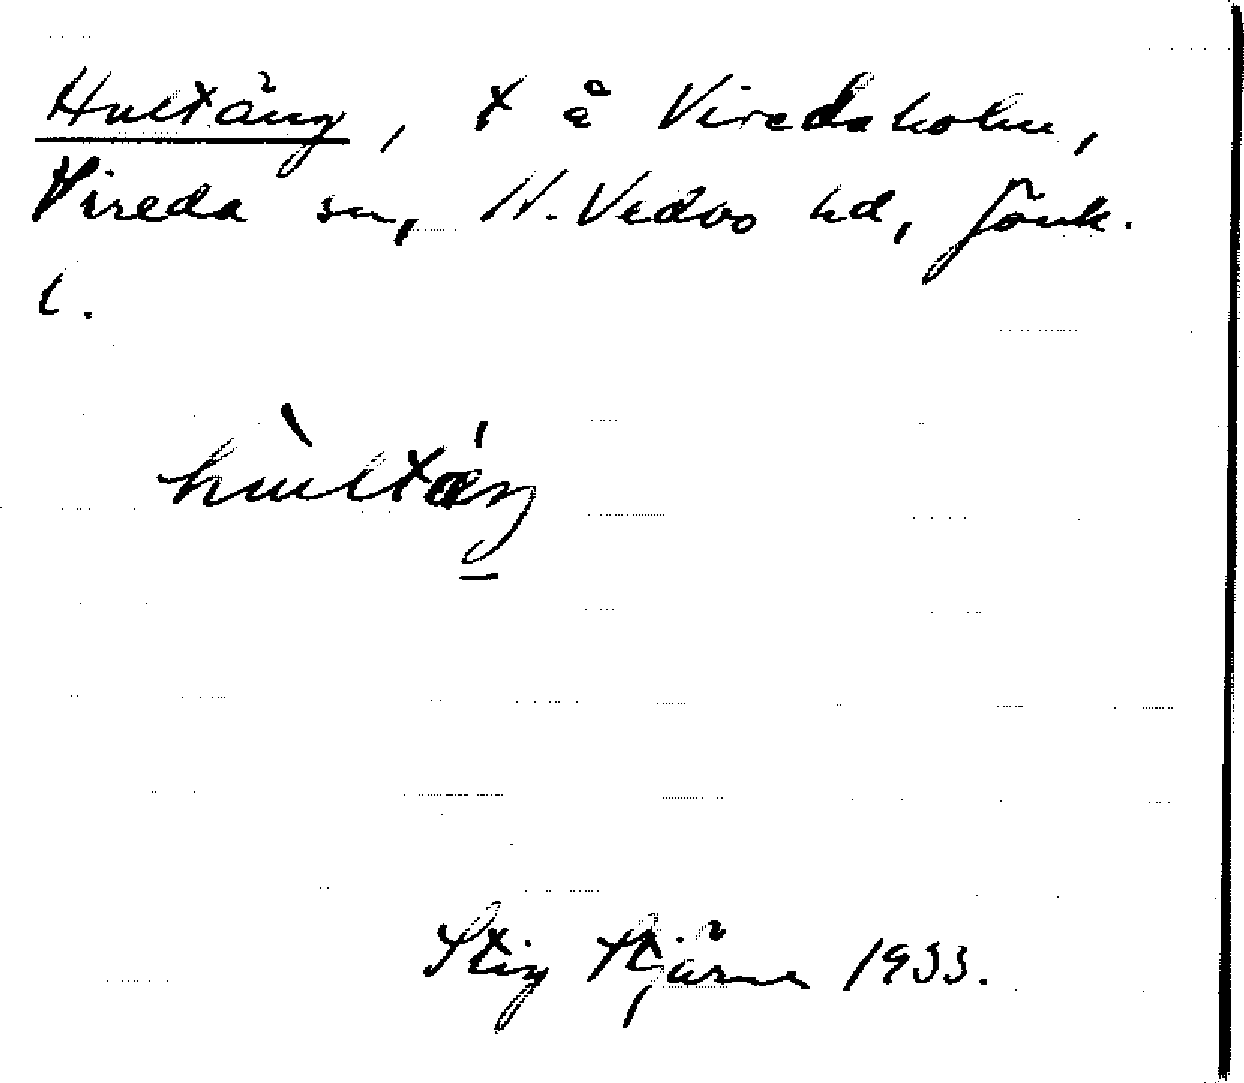 Hultäng, t å Viredaholm,
Vireda sn, N. Vedbo hd, Jönk.
l.
hùltǽŋ
Stig Stjärne 1933.